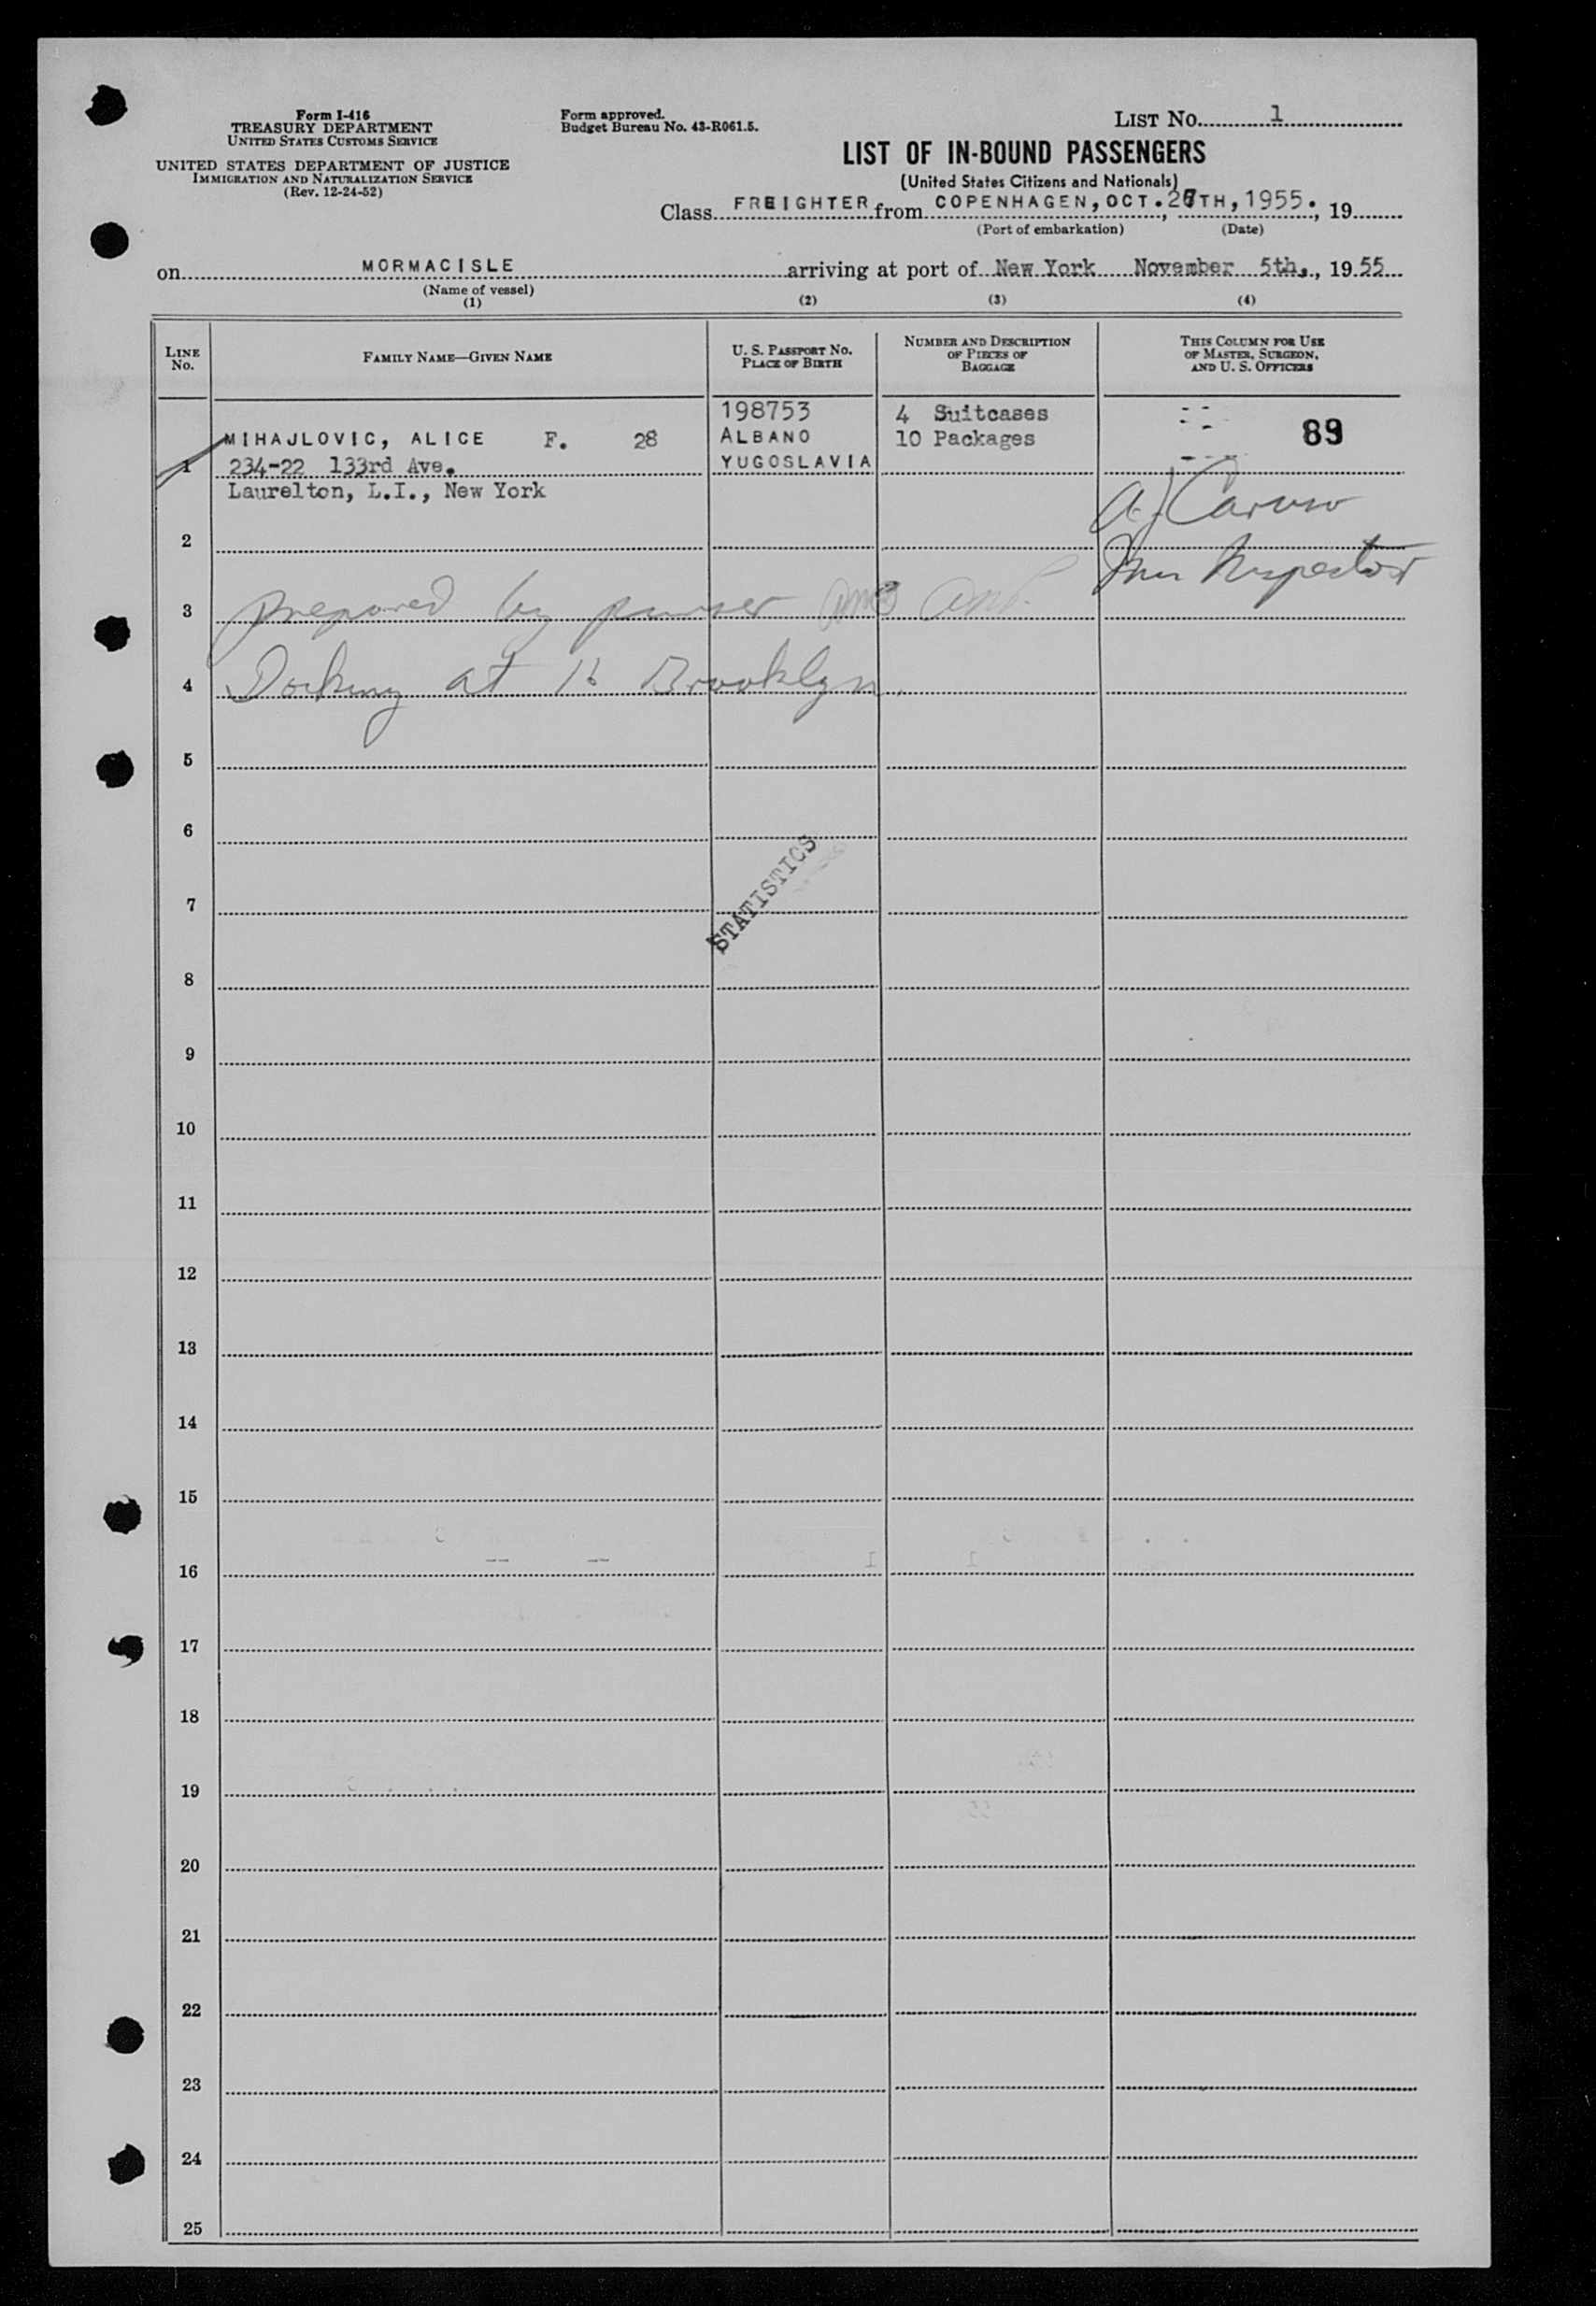 Form I-416
TREASURY DEPARTMENT
UNITED STATES CUSTOMS SERVICE
UNITED STATES DEPARTMENT OF JUSTICE
IMMIGRATION AND NATURALIZATION SERVICE
(Rev. 12-24-52)
Form approved.
Budget Bureau No. 43-R061.5.
LIST No. 1
LIST OF IN-BOUND PASSENGERS
(United States Citizens and Nationals)
Class FREIGHTER from COPENHAGEN, OCT. TH, 1955. , 19
(Port of embarkation) (Date)
on MORMACISLE arriving at port of New York November 5th, , 1955
(Name of vessel)
(1) (2) (3) (4)
LINE No. FAMILY NAME—GIVEN NAME U. S. PASSPORT No. PLACE OF BIRTH NUMBER AND DESCRIPTION OF PIECES OF BAGGAGE THIS COLUMN FOR USE OF MASTER, SURGEON, AND U. S. OFFICERS
198753 4 Suitcases
MIHAJLOVIC, ALICE F. 28 ALBANO 10 Packages 89
1 234-22 133rd Ave. YUGOSLAVIA
Laurelton, L.I., New York
A J Caruso
2
Imm Inspector
3 prepared by purser
4 Docking at Brooklyn.
5
6
STATISTICS
7
8
9
10
11
12
13
14
15
16
17
18
19
20
21
22
23
24
25